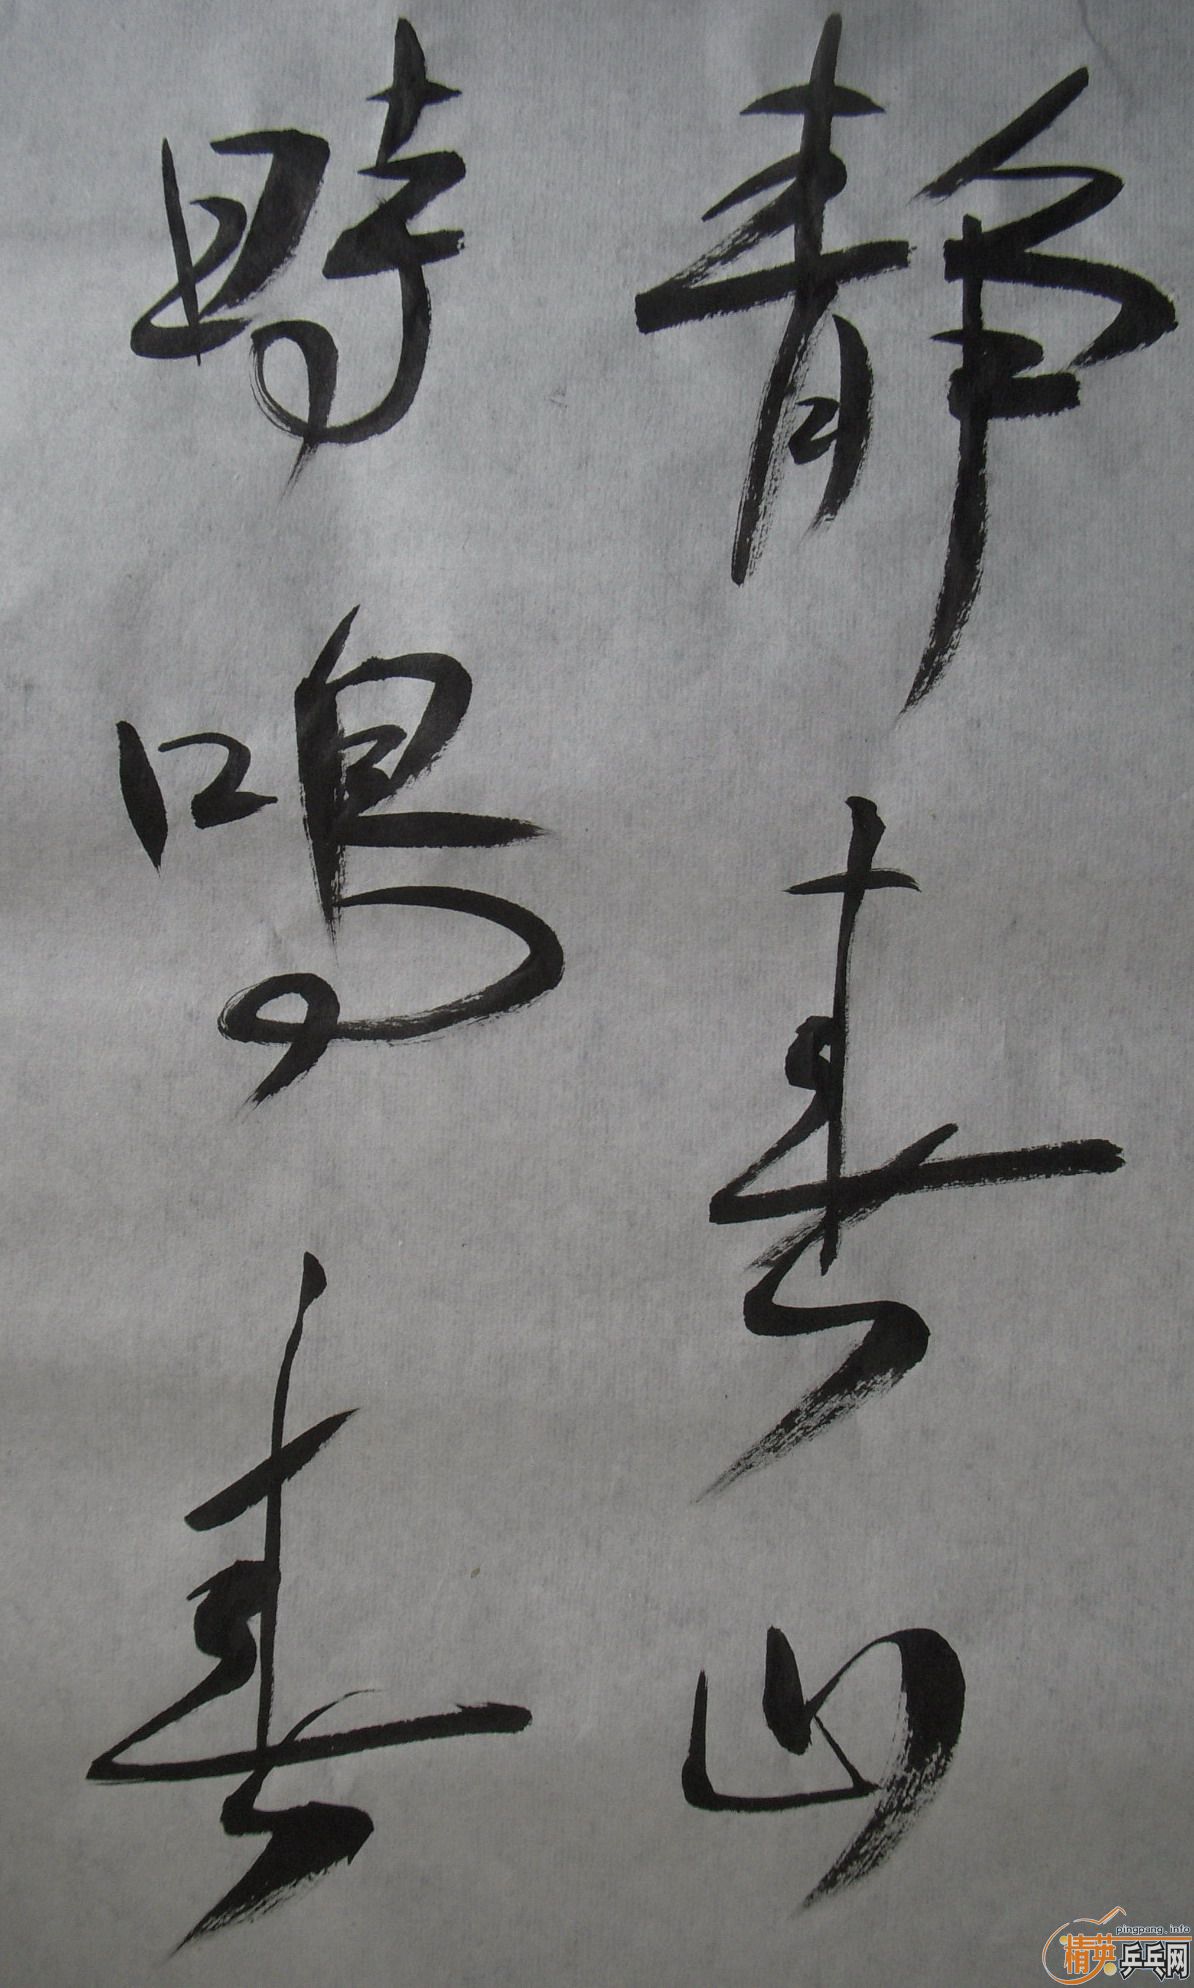 静春山
時鳴春
pingpang.info
精英乒乓网